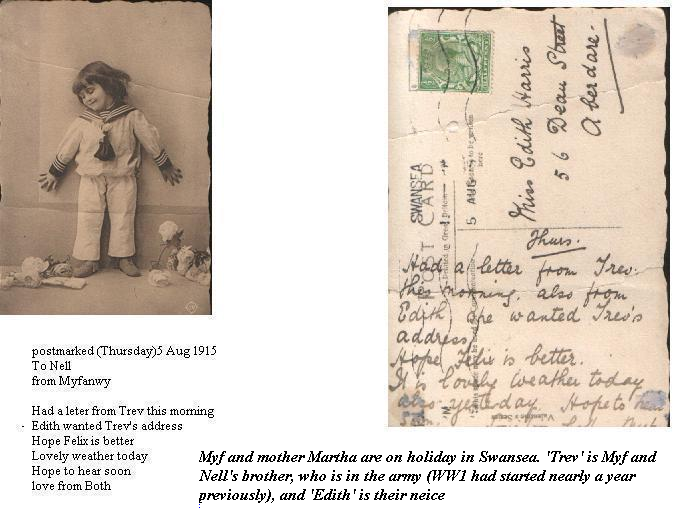 Miss Edith Harris
56 Dean Street
Aberdare.
SWANSEA
POST CARD
5 AUG
here
HALFPENNY
Thurs.
Had a letter from Trev.
this morning. also from
Edith she wanted Trev's
address
Hope Felix is better.
It is lovely weather today
also yesterday. Hope to
postmarked (Thursday)5 Aug 1915
To Nell
from Myfanwy
Had a leter from Trev this morning
Edith wanted Trev's address
Hope Felix is better
Lovely weather today
Hope to hear soon
love from Both
Myf and mother Martha are on holiday in Swansea. 'Trev' is Myf and
Nell's brother, who is in the army (WW1 had started nearly a year
previously), and 'Edith' is their neice